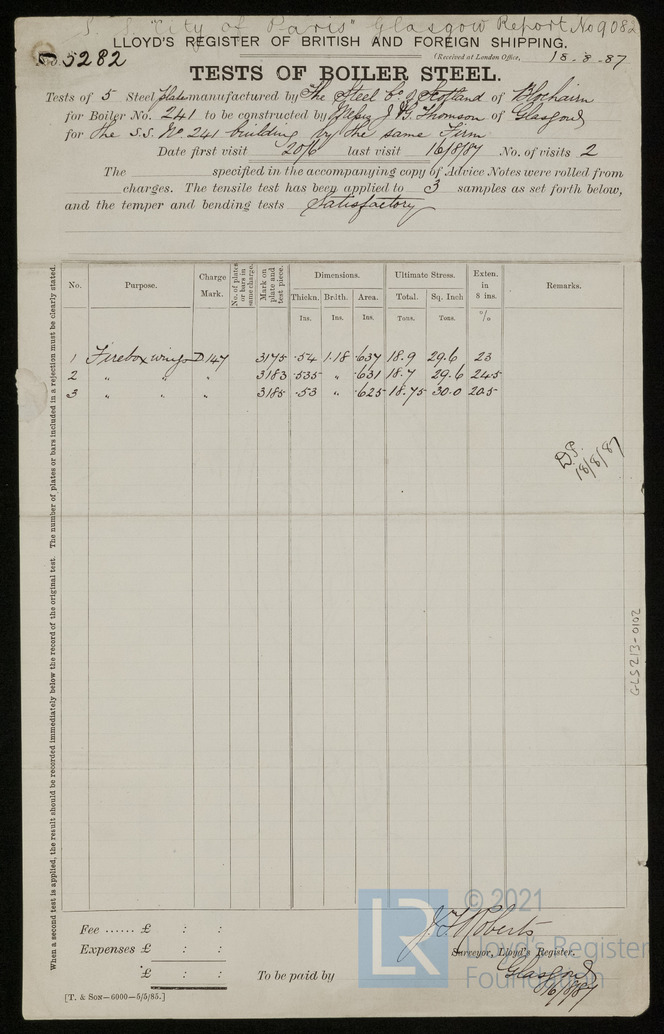 S.S. "City of Paris" Glasgow Report No 9082
LLOYD'S REGISTER OF BRITISH AND FOREIGN SHIPPING.
No. 5282
(Received at London Office, 18-8-87
TESTS OF BOILER STEEL.
Tests of 5 Steel plates manufactured by The Steel Co of Scotland of Blochairn
for Boiler No. 241 to be constructed by Messrs J & G Thomson of Glasgow
for the S.S. No 241 building by the same Firm
Date first visit 20/6 last visit 16/8/87 No. of visits 2
The specified in the accompanying copy of Advice Notes were rolled from
charges. The tensile test has been applied to 3 samples as set forth below,
and the temper and bending tests Satisfactory
When a second test is applied, the result should be recorded immediately below the record of the original test. The number of plates or bars included in a rejection must be clearly stated.
No. Purpose. Charge Mark. No. of plates or bars in same charge. Mark on plate and test piece. Dimensions. Ultimate Stress. Exten. in 8 ins. Remarks.
Thickn. Brdth. Area. Total. Sq. Inch
Ins. Ins. Ins. Tons. Tons. %
1 Firebox wings D147 3175 .54 1.18 .637 18.9 29.6 23
2 " " " 3183 .535 " .631 18.7 29.6 24.5
3 " " " 3185 .53 " .625 18.75 30.0 20.5
D.P.
18/8/87
GLS213-0102
Fee ...... £ : :
Expenses £ : :
£ : :
To be paid by
J. T. Roberts
Surveyor, Lloyd's Register.
Glasgow
16/8/87
[T. & Son—6000—5/5/85.]
LR
© 2021
Lloyd's Register
Foundation